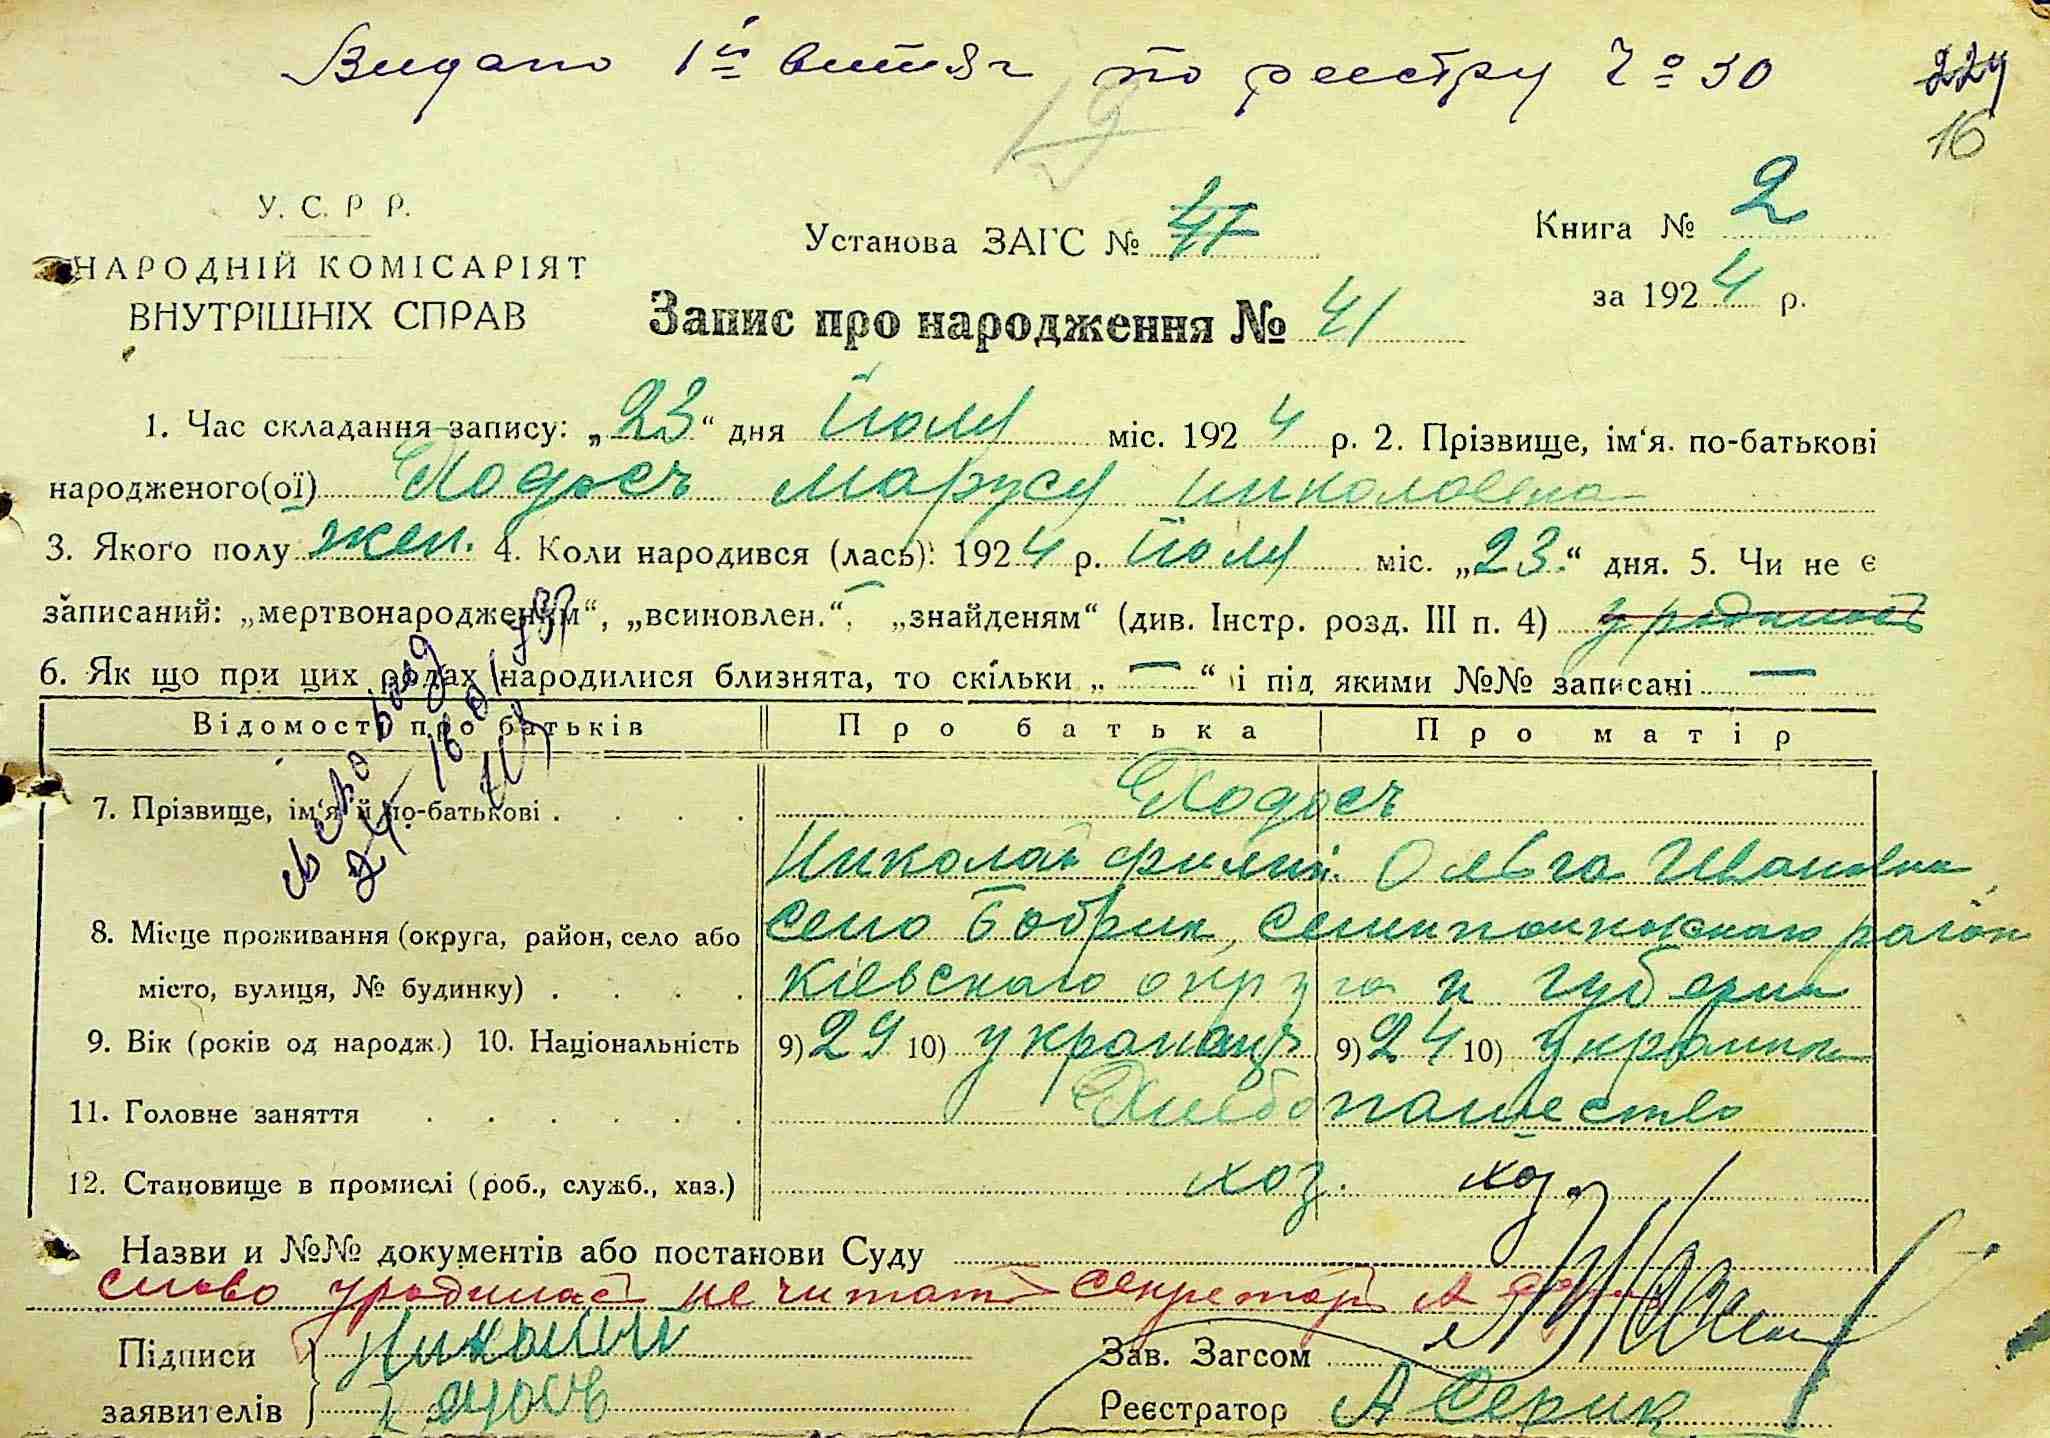 Видано 1й витяг по реестру Ч о 30 229
16
19
У. С. Р Р.
НАРОДНІЙ КОМІСАРІЯТ
ВНУТРІШНІХ СПРАВ
Установа ЗАГС № 41
Книга № 2
за 1924 р.
Запис про народження № 41
1. Час складання запису: „23“ дня Июля міс. 1924 р. 2. Прізвище, ім‘я. по-батькові
народженого(ої) Ходосъ Маруся Николаевна
3. Якого полу жен. 4. Коли народився (лась): 1924 р. Июля міс. „23.“ дня. 5. Чи не є
записаний: „мертвонародженим“, „всиновлен.“, „знайденям“ (див. Інстр. розд. III п. 4)
6. Як що при цих родах народилися близнята, то скільки „ — “ і під якими №№ записані —
Відомості про батьків Про батька Про матір
7. Прізвище, ім‘я й по-батькові Ходосъ
Николай Филип. Ольга Ивановна
8. Місце проживання (округа, район, село або село Бобрик, Семиполковскаго район
місто, вулиця, № будинку) Кіевскаго округа и губерни
9. Вік (років од народж.) 10. Національність 9) 29 10) украинец 9) 24 10) украинка
11. Головне заняття Хлебопашество
12. Становище в промислі (роб., служб., хаз.) хоз. хоз.
Назви и №№ документів або постанови Суду
слово уродилась не читать секретарь А
Підписи Николай
заявителів Ходось
Зав. Загсом
Реєстратор А Серик